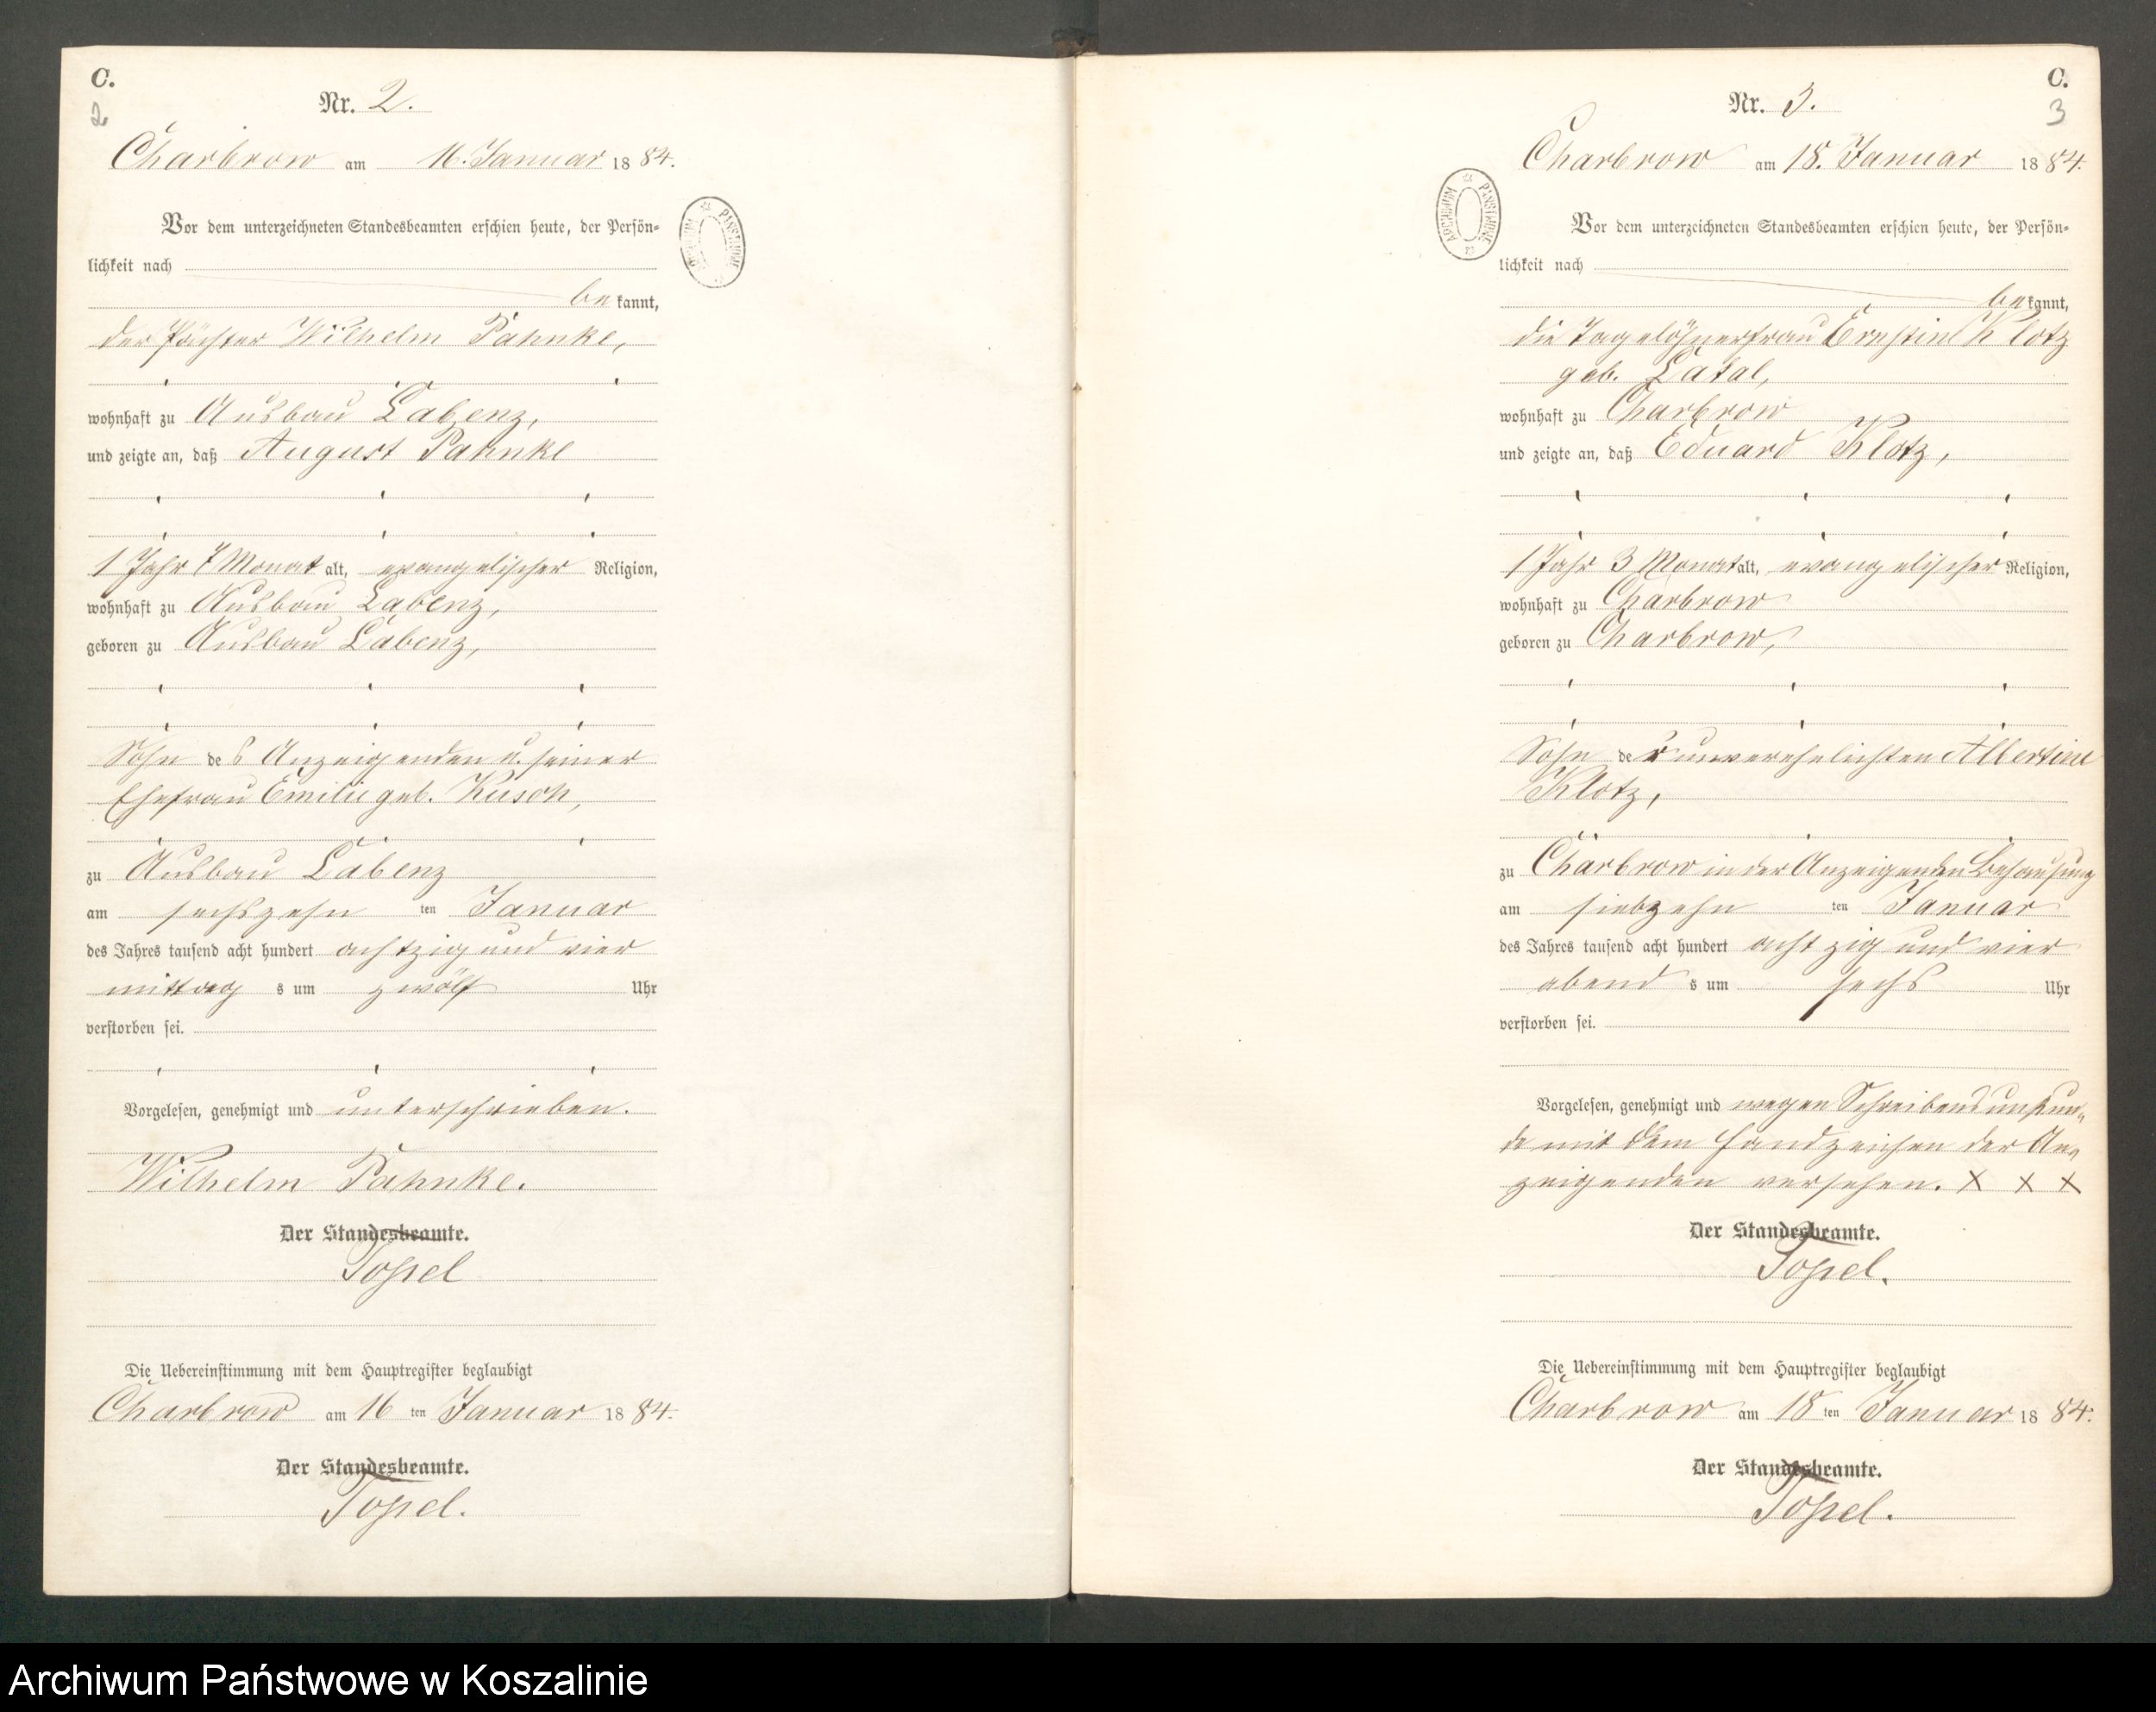 C.
2
Nr. 2.
Charbrow am 16. Januar 1884.
Vor dem unterzeichneten Standesbeamten erschien heute, der Persön-
lichkeit nach
bekannt,
der Pächter Wilhelm Pahnke,
wohnhaft zu Ausbau Labenz,
und zeigte an, daß August Pahnke
1 Jahr 7 Monat alt, evangelischer Religion,
wohnhaft zu Ausbau Labenz,
geboren zu Ausbau Labenz,
Sohn des Anzeigenden u. seiner
Ehefrau Emilie geb. Kusch,
zu Ausbau Labenz
am sechszehn ten Januar
des Jahres tausend acht hundert achtzig und vier
mittags um zwölf Uhr
verstorben sei.
Vorgelesen, genehmigt und unterschrieben.
Wilhelm Pahnke.
Der Standesbeamte.
Die Uebereinstimmung mit dem Hauptregister beglaubigt
Charbrow am 16 ten Januar 1884.
Der Standesbeamte.
C.
3
Nr. 3.
Charbrow am 18. Januar 1884.
ARCHIWUM PAŃSTWOWE
Vor dem unterzeichneten Standesbeamten erschien heute, der Persön-
lichkeit nach
bekannt,
die Tagelöhnerfrau Ernstine Klotz
geb.
wohnhaft zu Charbrow
und zeigte an, daß Eduard Klotz,
1 Jahr 3 Monat alt, evangelischer Religion,
wohnhaft zu Charbrow
geboren zu Charbrow,
Sohn der unverehelichten Albertine
Klotz,
zu Charbrow in der Anzeigenden Behausung
am siebzehn ten Januar
des Jahres tausend acht hundert achtzig und vier
abends um sechs Uhr
verstorben sei.
Vorgelesen, genehmigt und wegen Schreibensunkun-
de mit dem Handzeichen der An-
zeigenden versehen. X X X
Der Standesbeamte.
Die Uebereinstimmung mit dem Hauptregister beglaubigt
Charbrow am 18 ten Januar 1884.
Der Standesbeamte.
Archiwum Państwowe w Koszalinie